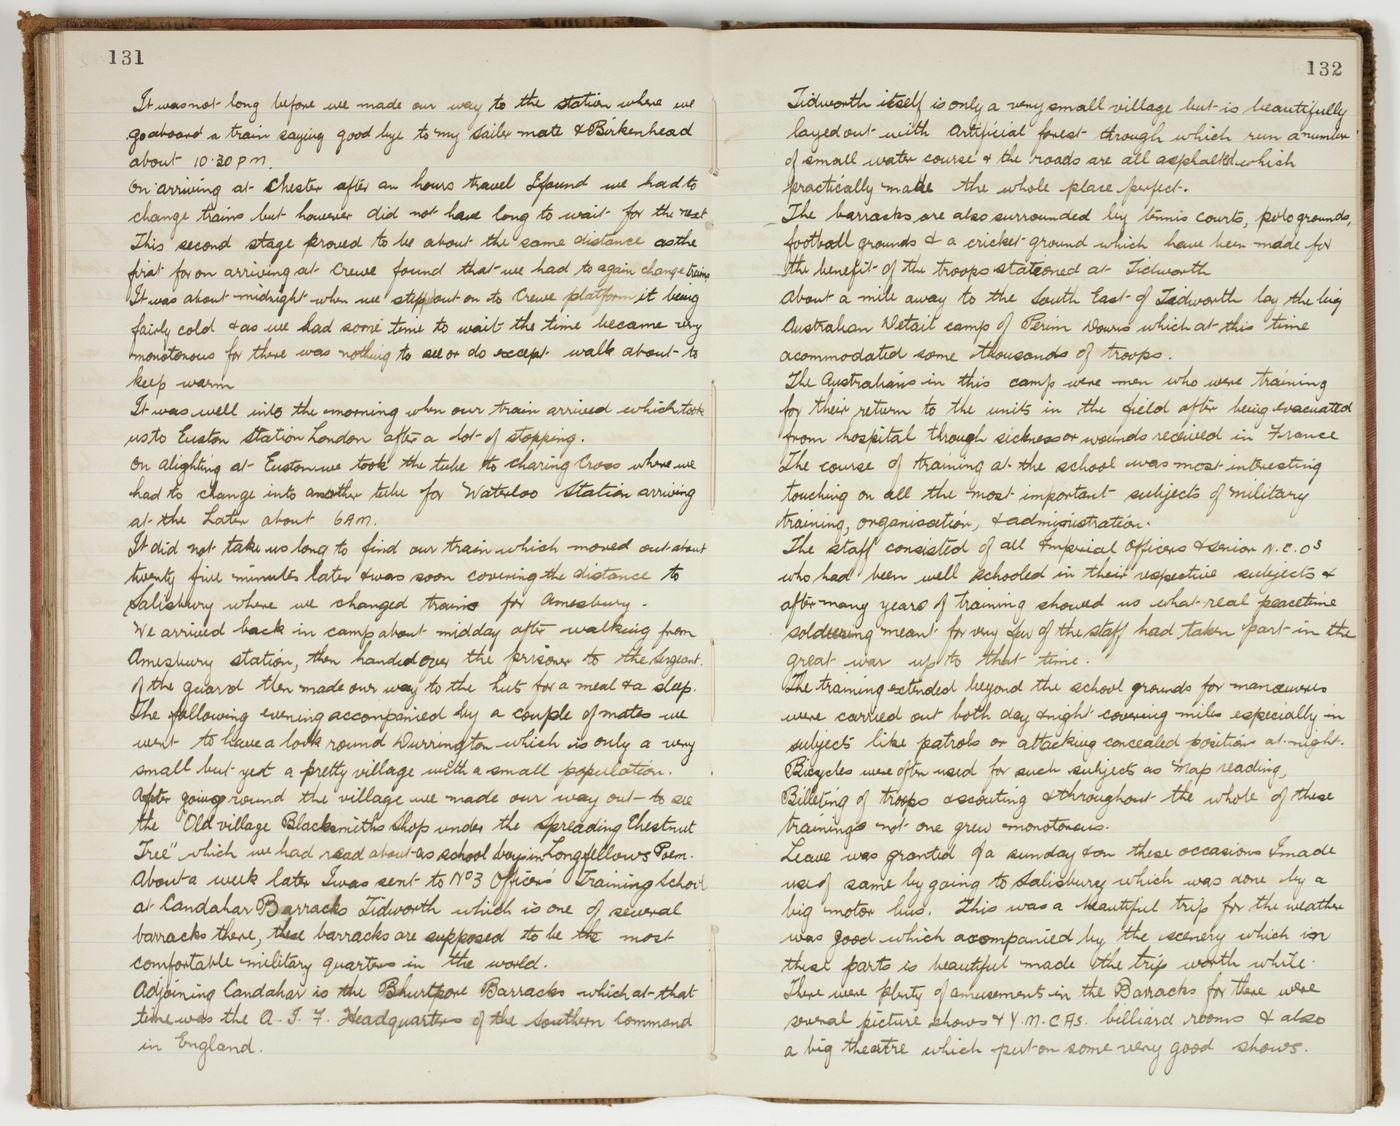 131
It was not long before we made our way to the station where we
go aboard a train saying good bye to my sailor mate & Birkenhead
about 10.30 PM.
On arriving at Chester after an hours travel I found we had to
change trains but however did not have long to wait for the next
This second stage proved to be about the same distance as the
first for on arriving at Crewe found that we had to again change trains
It was about midnight when we stepp out on to Crewe platform it being
fairly cold & as we had some time to wait the time became very
monotonous for there was nothing to see or do except walk about to
keep warm
It was well into the morning when our train arrived which took
us to Euston Station London after a lot of stopping.
On alighting at Euston we took the tube to Charing Cross where we
had to change into another tube for Waterloo Station arriving
at the later about 6 AM.
It did not take us long to find our train which moved out about
twenty five minutes later & was soon covering the distance to
Salisbury where we changed trains for Amesbury.
We arrived back in camp about midday after walking from
Amesbury station, then handed over the prisoner to the Sergeant.
of the guard then made our way to the huts for a meal & a sleep.
The following evening accompanied by a couple of mates we
went to have a look round Durrington which is only a very
small but yet a pretty village with a small population.
After going round the village we made our way out to see
the "Old village Blacksmiths Shop under the Spreading Chestnut
Tree" which we had read about as school boys in Longfellows Poem.
About a week later I was sent to No 3 Officers' Training School
at Candahar Barracks Tidworth which is one of several
barracks there, these barracks are supposed to be the most
comfortable military quarters in the world.
Adjoining Candahar is the Bhurtpore Barracks which at that
time was the A.I.F. Headquarters of the Southern Command
in England.
132
Tidworth itself is only a very small village but is beautifully
layed out with Artificial forest through which run a number
of small water course & the roads are all asphalted which
practically made the whole place perfect.
The barracks are also surrounded by tennis courts, polo grounds,
football grounds & a cricket ground which have been made for
the benefit of the troops stationed at Tidworth
About a mile away to the South East of Tidworth lay the big
Australian Detail camp of Perim Downs which at this time
acommodated some thousands of troops.
The Australians in this camp were men who were training
for their return to the units in the field after being evacuated
from hospital through sickness or wounds received in France
The course of training at the school was most interesting
touching on all the most important subjects of military
training, organisation, & administration.
The staff consisted of all Imperial Officers & senior N.C.Os
who had been well schooled in their respective subjects &
after many years of training showed us what real peacetime
soldiering meant for very few of the staff had taken part in the
great war up to that time.
The training extended beyond the school grounds for manœuvres
were carried out both day & night covering miles especially in
subjects like patrols or attacking concealed positions at night.
Bicycles were often used for such subjects as Map reading,
Billeting of troops & scouting & throughout the whole of these
trainings not one grew monotonous.
Leave was granted of a sunday & on these occasions I made
use of same by going to Salisbury which was done by a
big motor bus. This was a beautiful trip for the weather
was good which accompanied by the scenery which in
these parts is beautiful made the trip worth while.
There were plenty of amusements in the Barracks for there were
several picture shows & Y.M.C.As. billiard rooms & also
a big theatre which put on some very good shows.